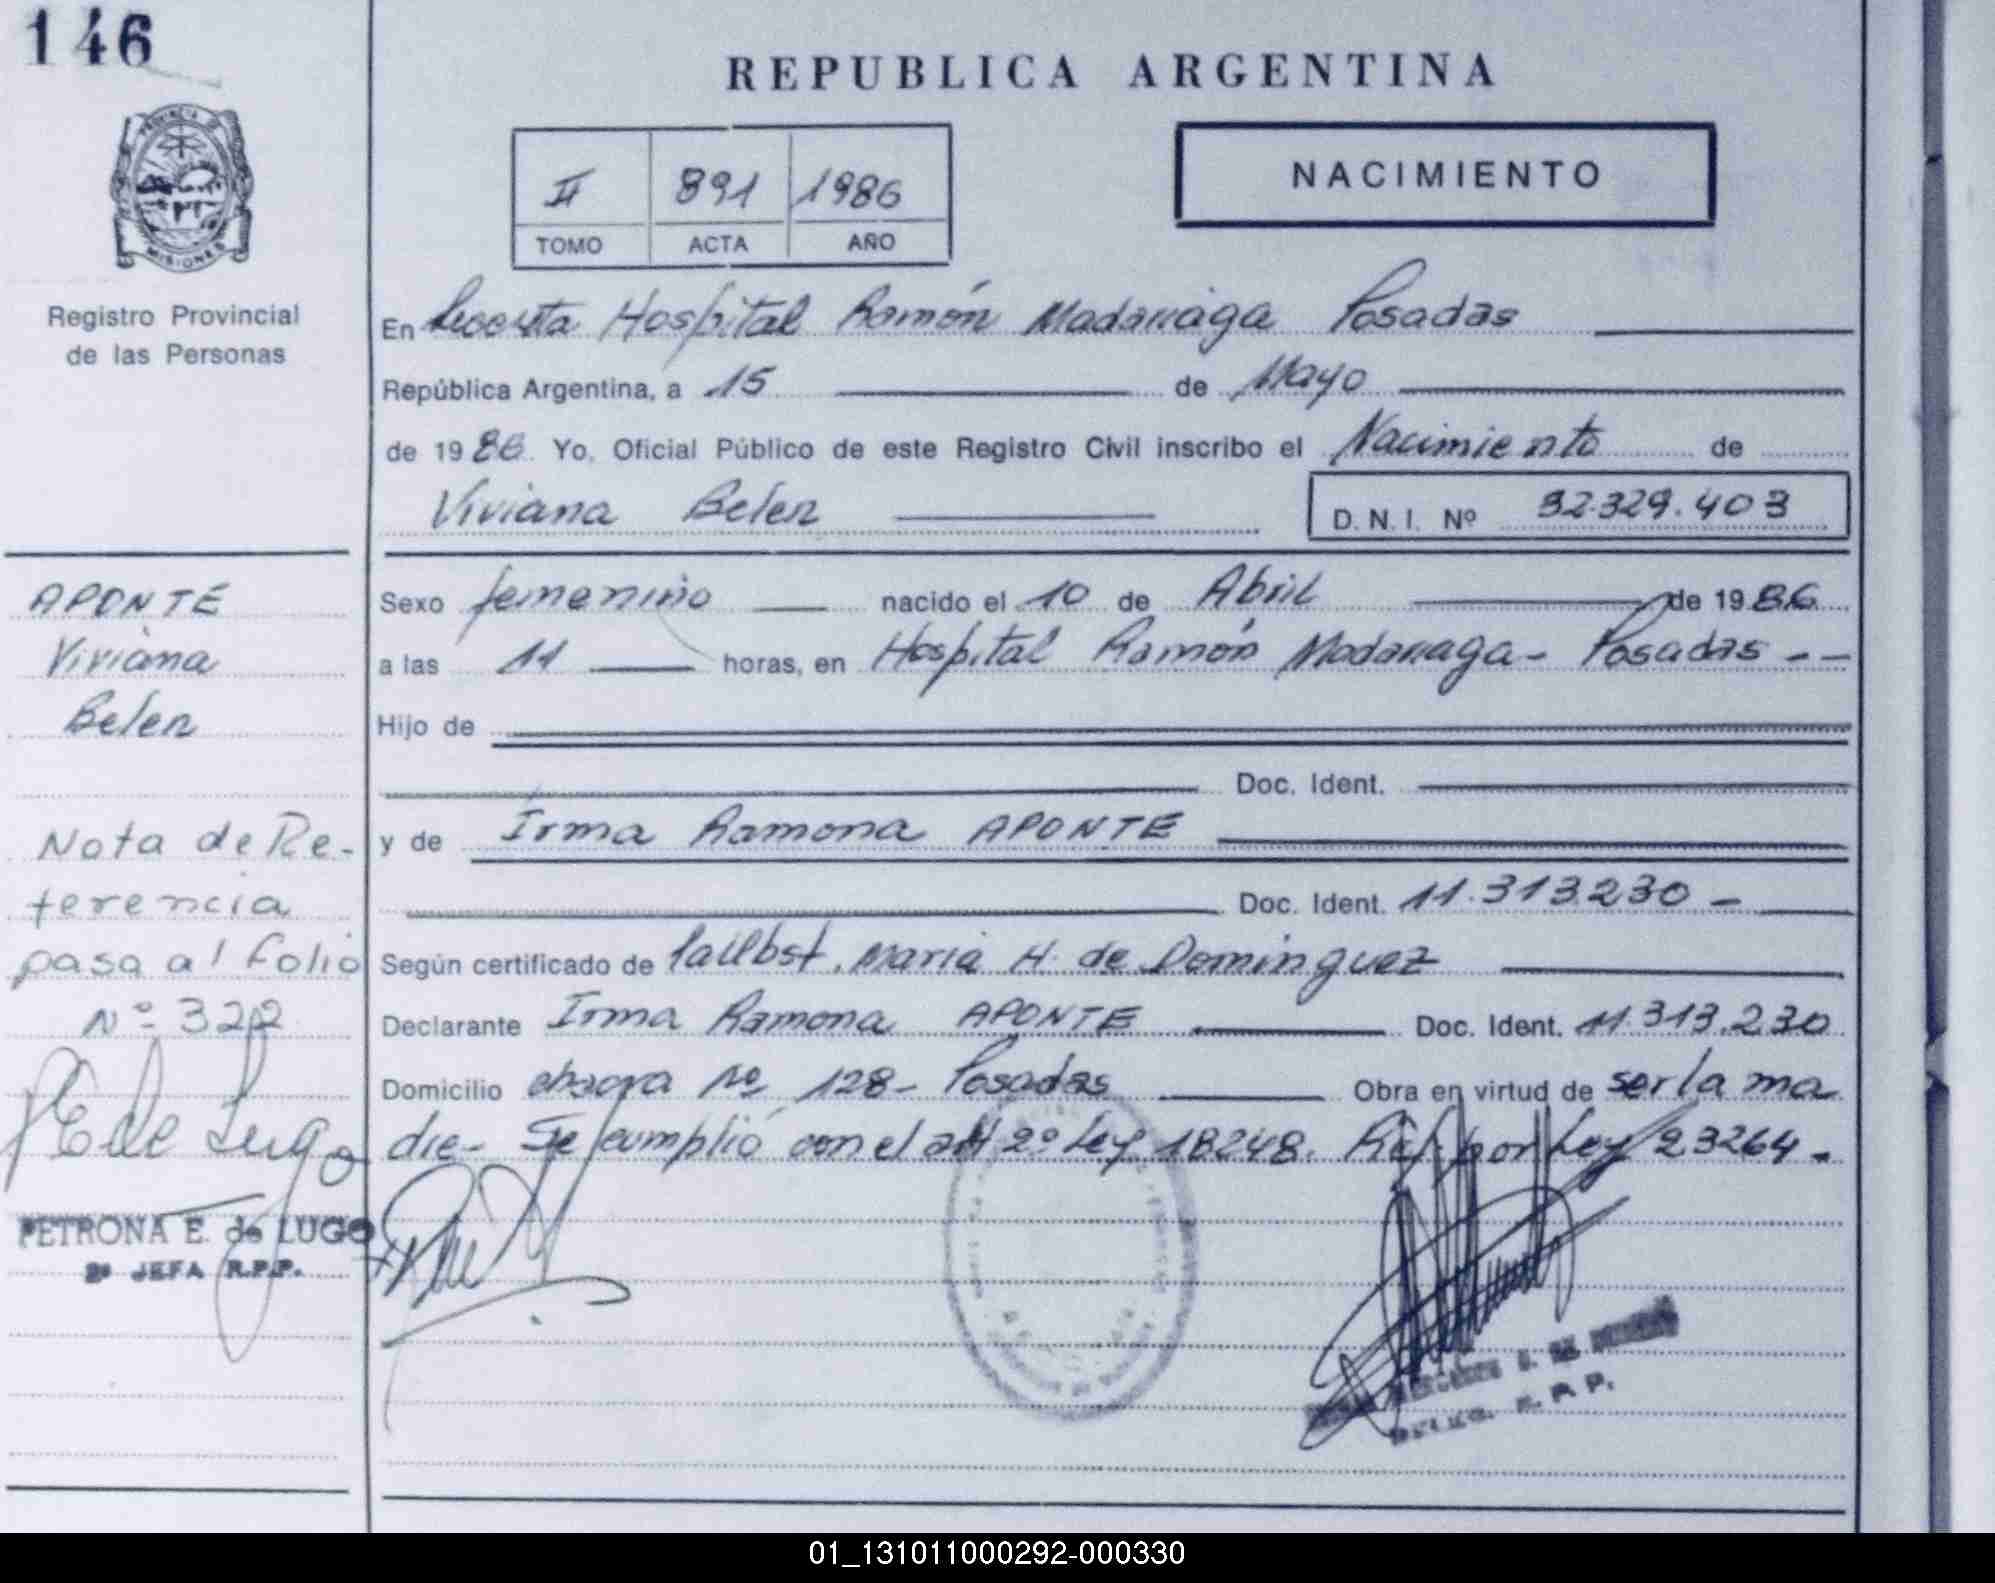 146
REPUBLICA ARGENTINA
PROVINCIA DE
MISIONES
II 891 1986
TOMO ACTA AÑO
NACIMIENTO
Registro Provincial
de las Personas
En Hospital Ramón Madariaga Posadas
República Argentina, a 15 de Mayo
de 1986. Yo, Oficial Público de este Registro Civil inscribo el Nacimiento de
Viviana Belen
D. N. I. Nº 32.329.403
APONTE
Viviana
Belen
Sexo femenino nacido el 10 de Abril de 1986
a las 11 horas, en Hospital Ramón Madariaga - Posadas - -
Hijo de
Doc. Ident.
y de Irma Ramona APONTE
Doc. Ident. 11.313.230 -
Según certificado de Maria H. de Dominguez
Declarante Irma Ramona APONTE Doc. Ident. 11.313.230
Domicilio chacra Nº 128 - Posadas Obra en virtud de ser la ma
dre - Se cumplió con el art 2º Ley 18248. Ref. por Ley 23264 -
Nota de Re-
ferencia
pasa al folio
Nº 322
E de Lugo
PETRONA E. de LUGO
2º JEFA R.P.P.
R. P. P.
01_131011000292-000330